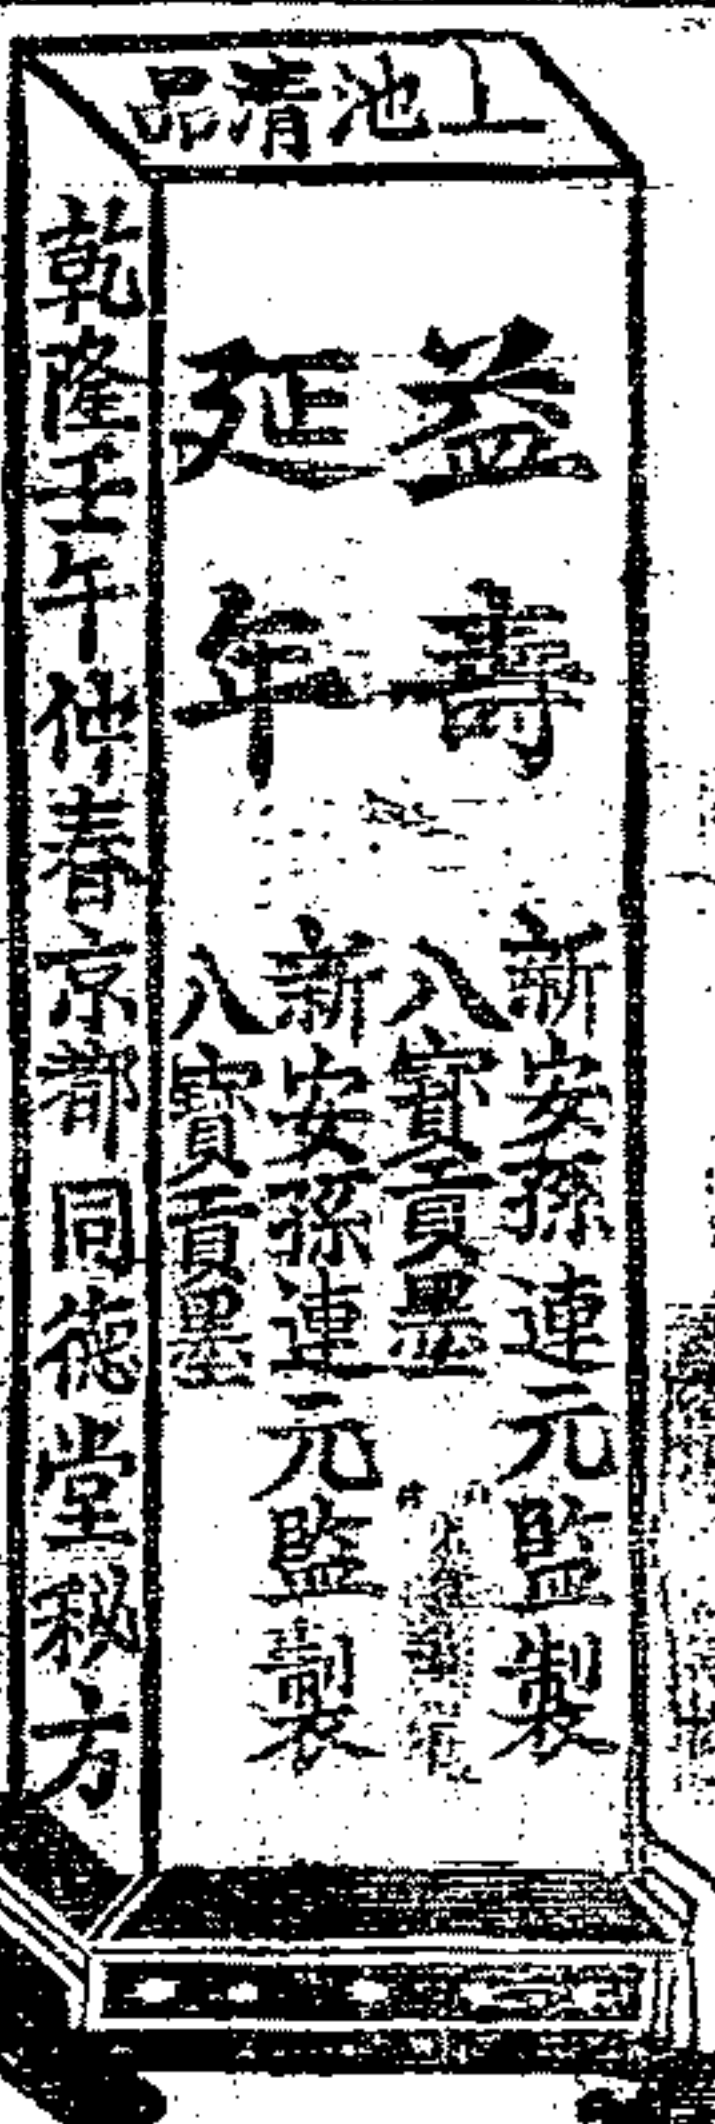 上池清品
益壽
延年
新安孫連元監製
八寶貢墨
新安孫連元監製
八寶貢墨
乾隆壬午仲春京都同德堂秘方